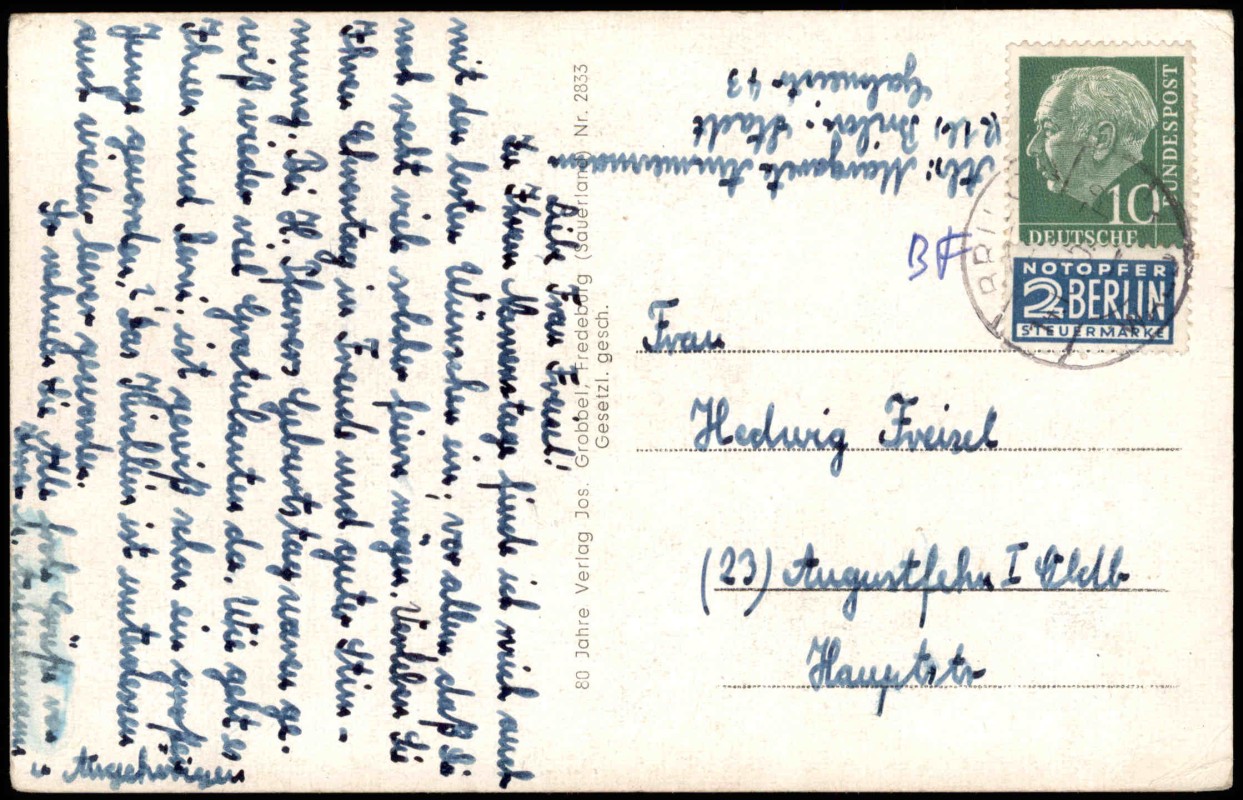 Liebe Frau Freisel!
Zu Ihrem Namenstage finde ich mich auch
mit den besten Wünschen ein, vor allem daß Sie
noch recht viele solcher feiern mögen. Verleben Sie
Ihren Ehrentag in Freude und guter Stim-
mung. Bei H. Pfarrers Geburtstag waren ge-
wiß wieder viel Gratulanten da. Wie geht es
Ihnen und Berni, ist gewiß schon ein großer
Junge geworden? Das Kindlein ist unterdessen
auch wieder
So nehmen Sie Alle frohe Grüße von
Ihrer
u Angehörigen
80 Jahre Verlag Jos. Grobbel, Fredeburg (Sauerland) Nr. 2833
Gesetzl. gesch.
Abs: Margarete Ammermann
Brilon - Stadt
43
BUNDESPOST
10
DEUTSCHE
NOTOPFER
2 BERLIN
STEUERMARKE
BRILON
BF
Frau
Hedwig Freisel
(23) Augustfehn I Oldb
Hauptstr